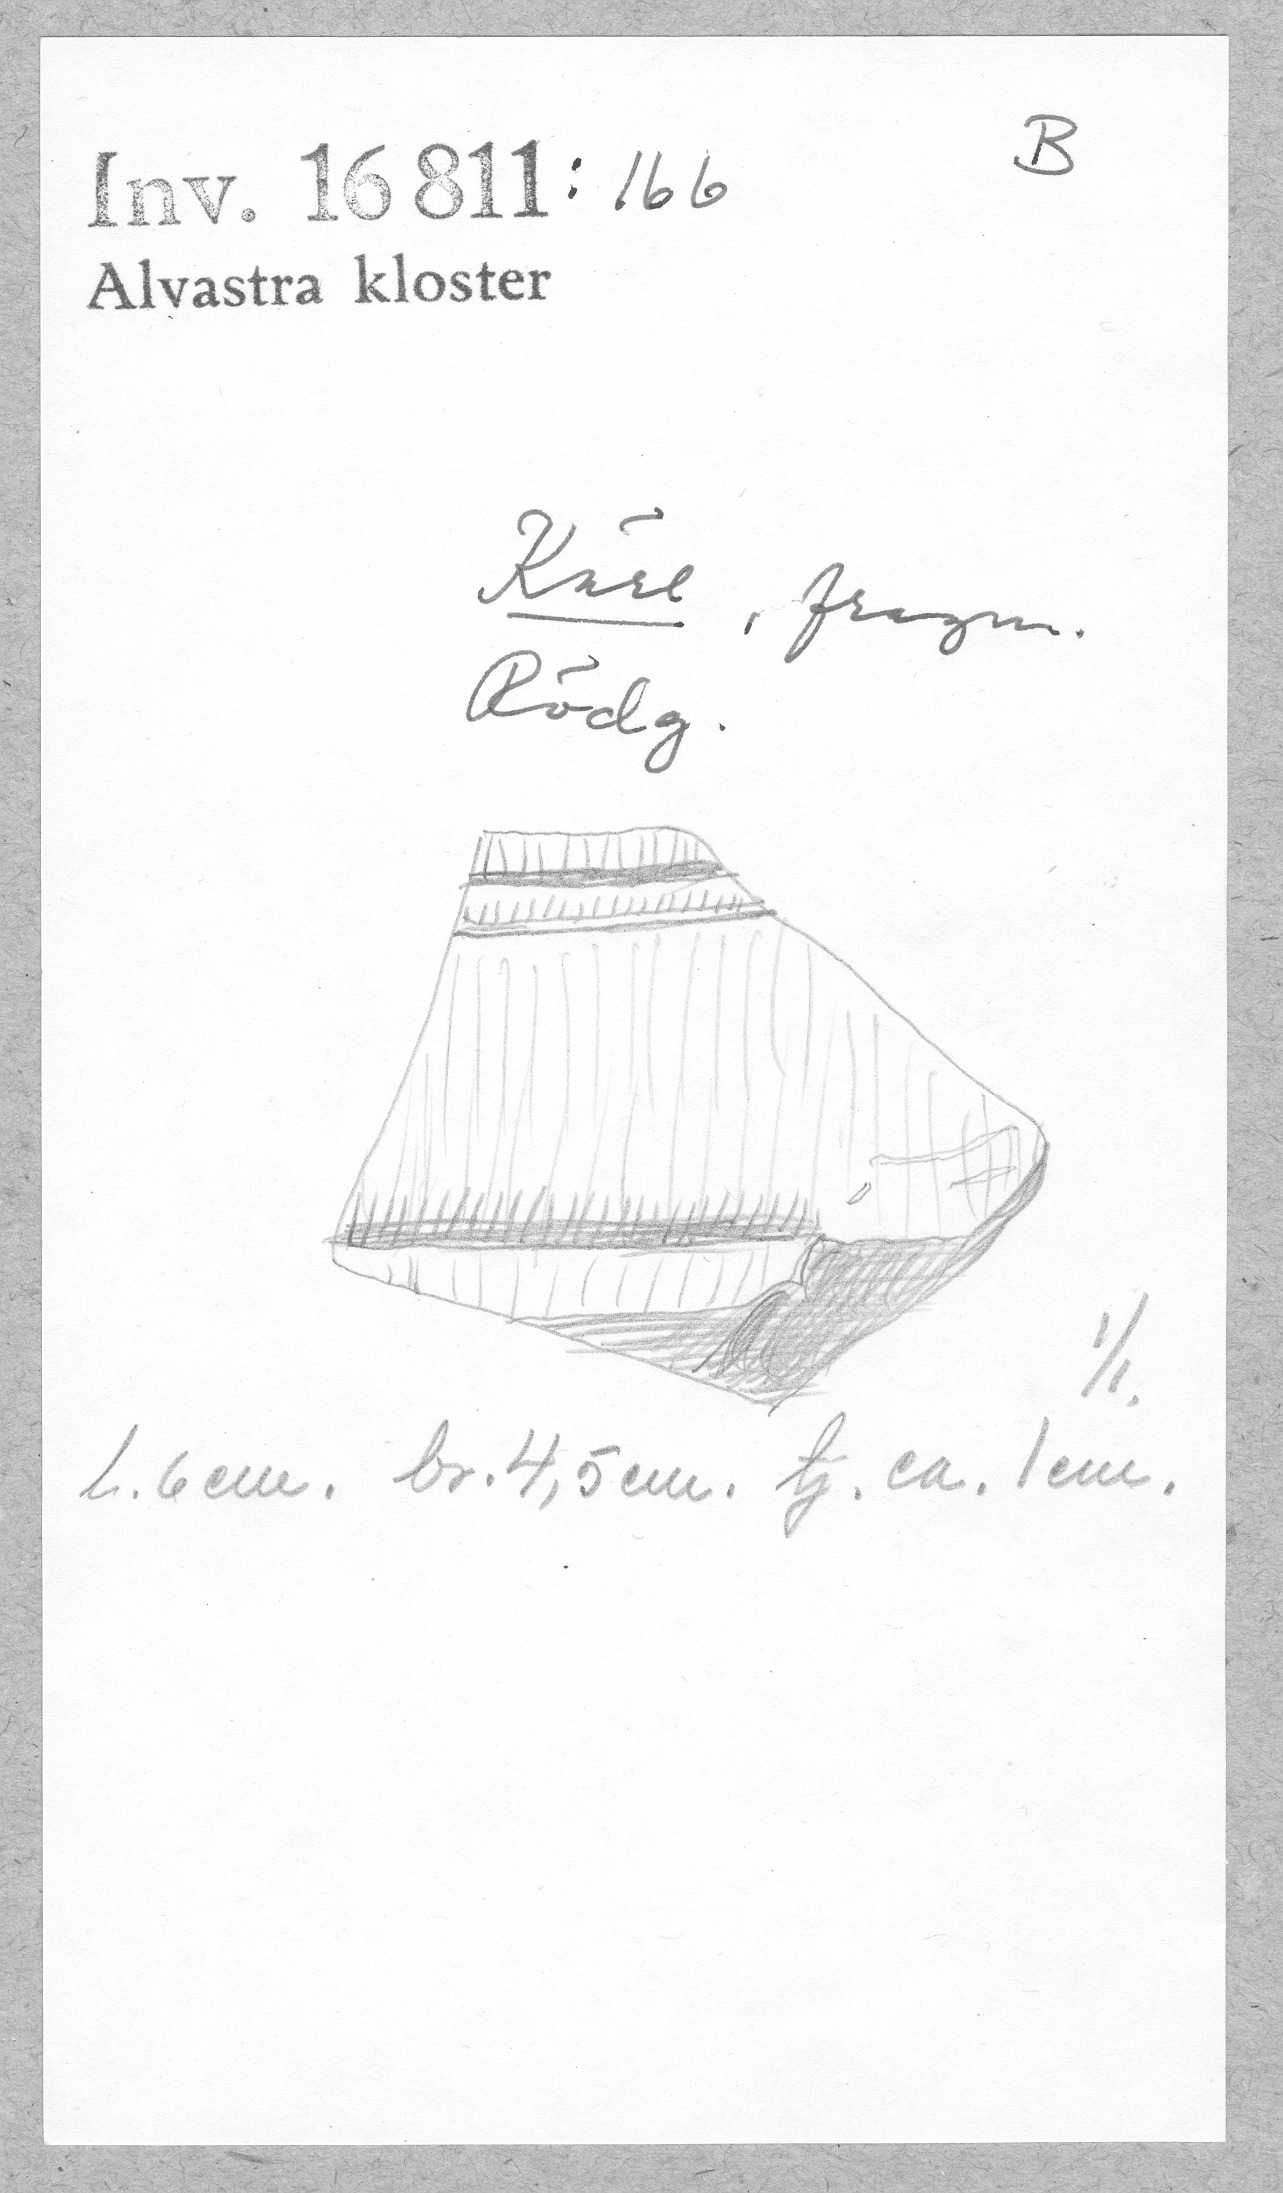 Inv. 16 811:166
B
Alvastra kloster
Kärl, fragm.
Rödg.
1/1.
L. 6 cm. br. 4,5 cm. tj. ca. 1 cm.